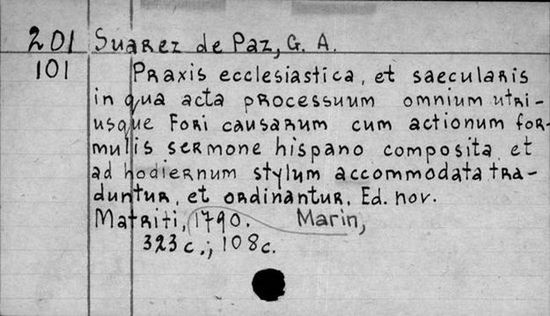 201 Suarez de Paz, G. A.
101 Praxis ecclesiastica, et saecularis
in qua acta processuum omnium utri-
usque Fori causarum cum actionum for-
mulis sermone hispano composita et
ad hodiernum stylum accommodata tra-
duntur, et ordinantur. Ed. nov.
Matriti, 1790. Marin,
323c.; 108c.